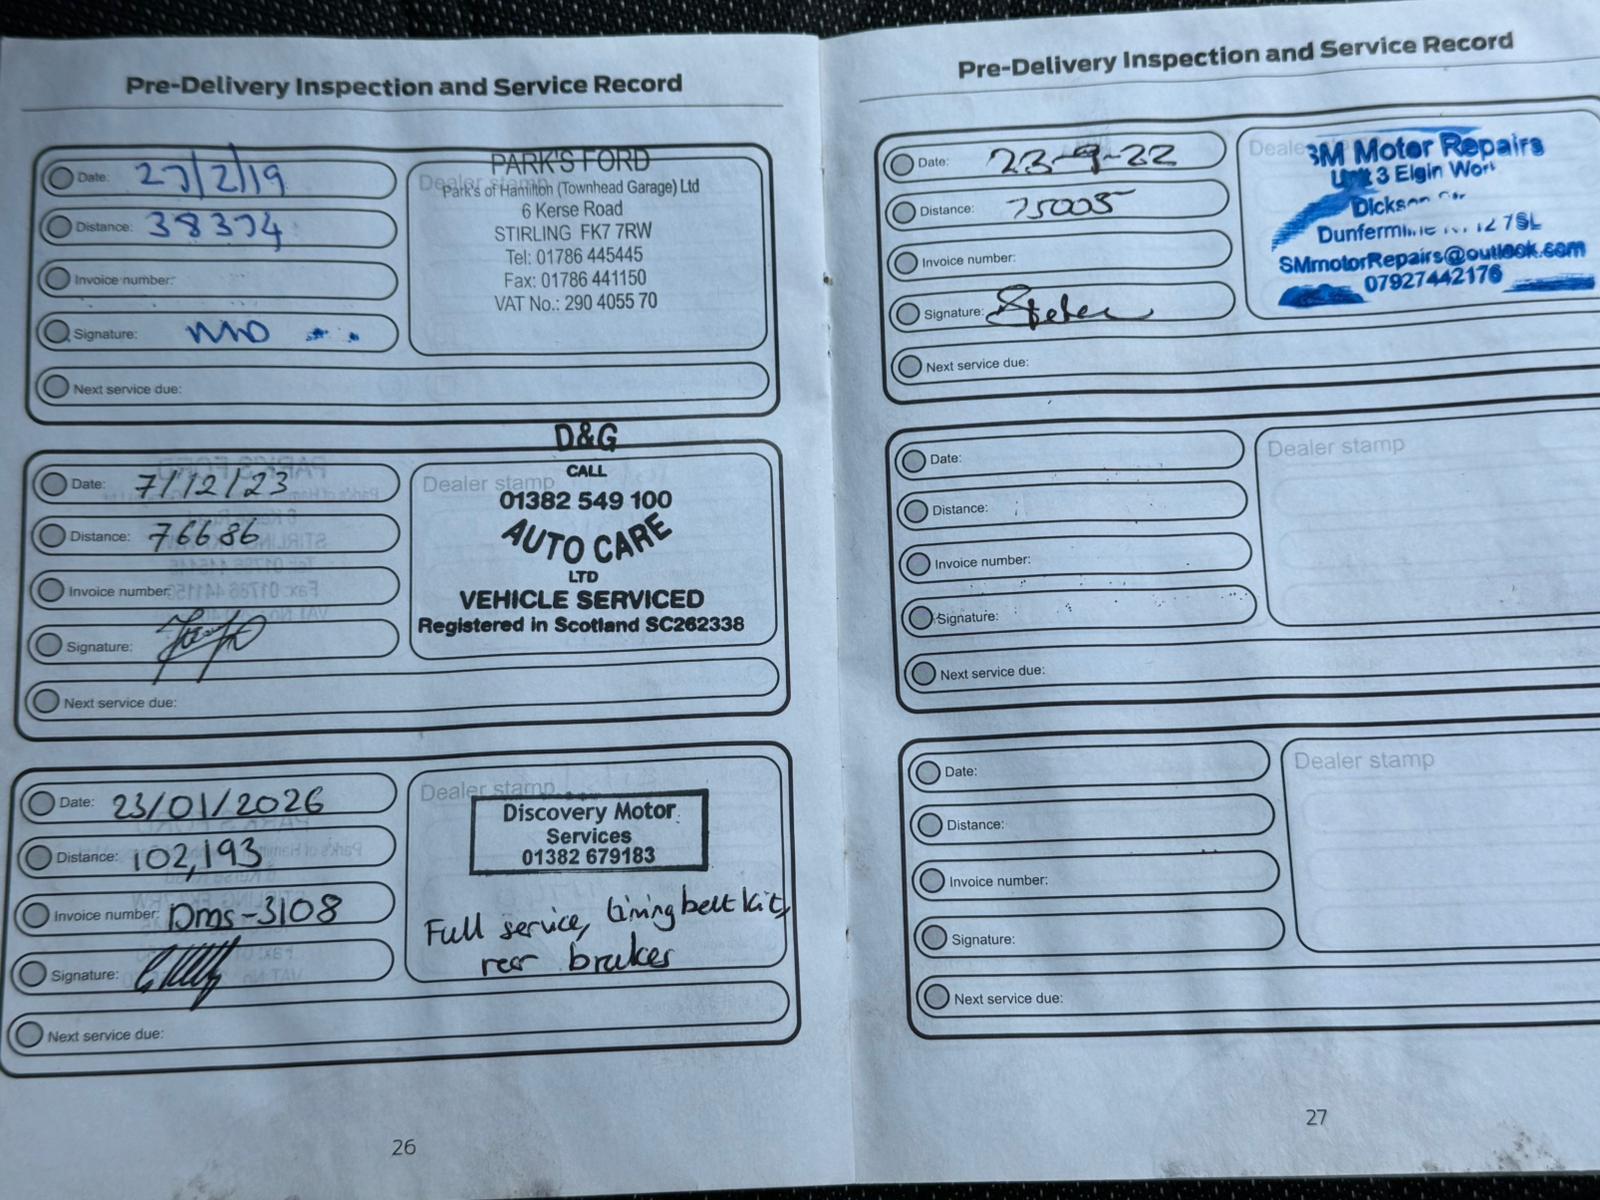 Pre-Delivery Inspection and Service Record
Date: 27/2/19
Distance: 38374
Invoice number:
Signature:
Next service due:
Dealer stamp
PARK'S FORD
Park's of Hamilton (Townhead Garage) Ltd
6 Kerse Road
STIRLING FK7 7RW
Tel: 01786 445445
Fax: 01786 441150
VAT No.: 290 4055 70
Date: 7/12/23
Distance: 76686
Invoice number:
Signature:
Next service due:
Dealer stamp
D&G
CALL
01382 549 100
AUTO CARE
LTD
VEHICLE SERVICED
Registered in Scotland SC262338
Date: 23/01/2026
Distance: 102,193
Invoice number: Dms-3108
Signature:
Next service due:
Dealer stamp
Discovery Motor
Services
01382 679183
Full service, timing belt kit,
rear brakes
26
Pre-Delivery Inspection and Service Record
Date: 23-9-22
Distance: 75005
Invoice number:
Signature:
Next service due:
Dealer
SM Motor Repairs
Unit 3 Elgin
Dunfermline 7SL
SMmotorRepairs@outlook.com
07927442176
Date:
Distance:
Invoice number:
Signature:
Next service due:
Dealer stamp
Date:
Distance:
Invoice number:
Signature:
Next service due:
Dealer stamp
27